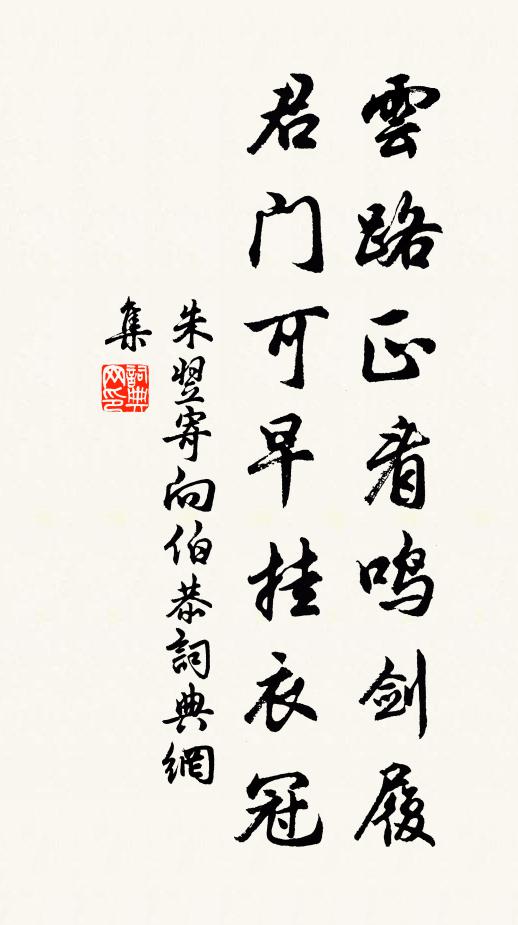 雲路正看鳴劍履
君门可早挂衣冠
朱翌寄向伯恭詞典網
集
詞典网印